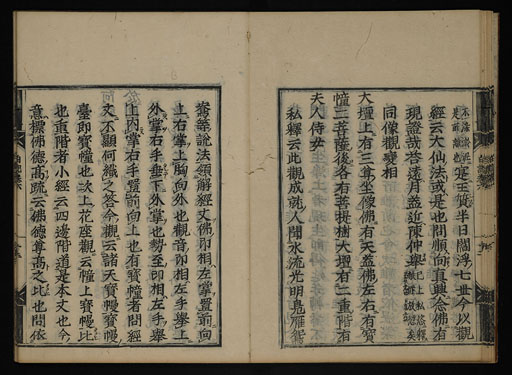 經云大仙法或是也問願向直與念佛有
現證哉答遠月盡近陳仲舉
同像觀變相
大壇上有三尊坐像佛有天蓋佛左右有寶
幢二菩薩後各有菩提樹大壇有二重階有
夫人侍女
私釋云此觀成就人聞水流光明鳧雁
鴛鴦說法須解經文佛印相左掌置前向
上右掌上胸向外也觀音印相左手舉上
外掌右手垂下外掌也勢至印相右手舉
上內掌右手置前向上也有寶幢者問經
文不顯何織之答今觀云諸天寶幔寶幔
臺即寶幢也次上花座觀云幢上寶幔比
也重階者小經云四邊階道是本文也今
意攝佛德高疏云佛德尊高之比也問依